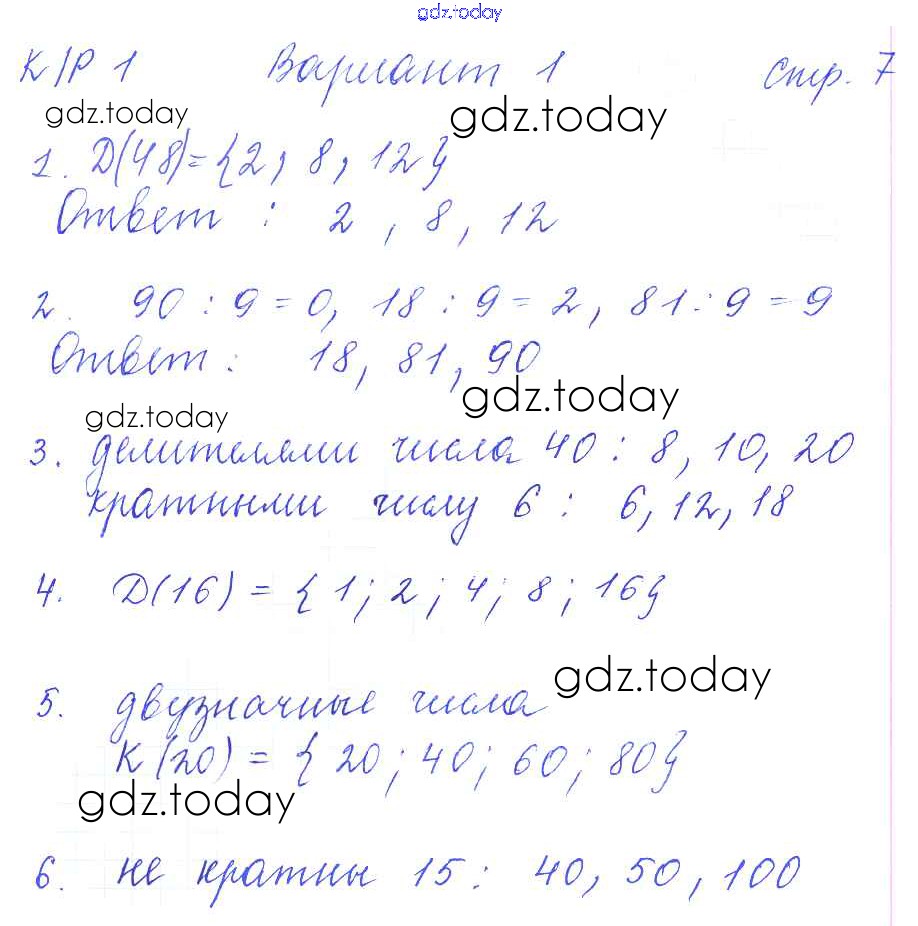 gdz.today
К/Р 1 Вариант 1 стр. 7
gdz.today gdz.today
1. D(48)={2, 8, 12}
Ответ : 2 , 8, 12
2. 90 : 9 = 0, 18 : 9 = 2, 81 : 9 = 9
Ответ : 18, 81, 90
gdz.today
gdz.today
3. делителями числа 40 : 8, 10, 20
кратными числу 6 : 6, 12, 18
4. D(16) = {1; 2; 4; 8; 16}
gdz.today
5. двузначные числа
К(20) = {20; 40; 60; 80}
gdz.today
6. не кратны 15: 40, 50, 100